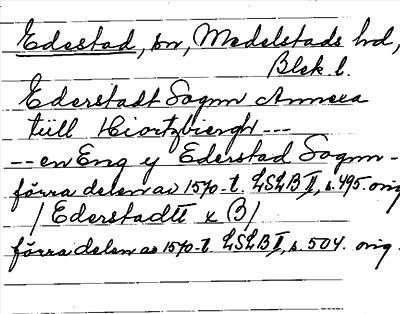 Edestad, sn, Medelstads hd,
Blek. l.
Ederstadt Sognn Annexa
till Hiortzbiergh ---
-- en Eng y Ederstad Sognn -
förra delen av 1570-t. LSLB II, s. 495. orig
/ Ederstadtt x B /
förra delen av 1570-t. LSLB II, s. 504. orig.